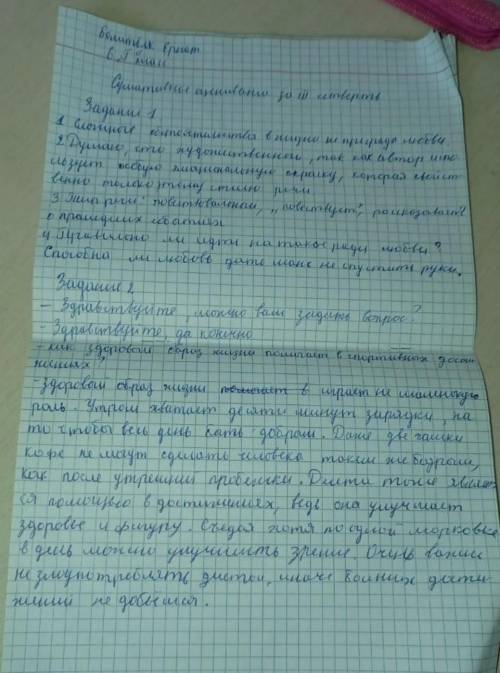 6 "Г" класс
Сумативное оценивание за III четверть
Задание 1
1 Сложные обстоятельства в жизни не преграда любви
2. Думаю, что художественный, так как автор испо-
льзует особую эмоциональную окраску, которая свойст-
венно только этому стилю речи
3. Тип речи: повествование, "повествует", рассказывает
о прошедших событиях
4 Правильно ли идти на такое ради любви?
Способна ли любовь дать шанс не опустить руки.
Задание 2
- Здравствуйте, можно вам задать вопрос?
- Здравствуйте, да конечно
- как здоровый образ жизни помогает в спортивных дости
жениях?
- здоровый образ жизни помогает в играет не маленькую
роль. Утром хватает десяти минут зарядки, на
то чтобы весь день быть бодрым. Даже две чашки
кофе не могут сделать человека таким же бодрым,
как после утренней пробежки. Диета тоже являет
ся помощью в достижениях, ведь она улучшает
здоровье и фигуру. Съедая хотя по одной морковке
в день можно улучшить зрение. Очень важно
не злоупотреблять диетой, иначе больших дости
жений не добьешься.